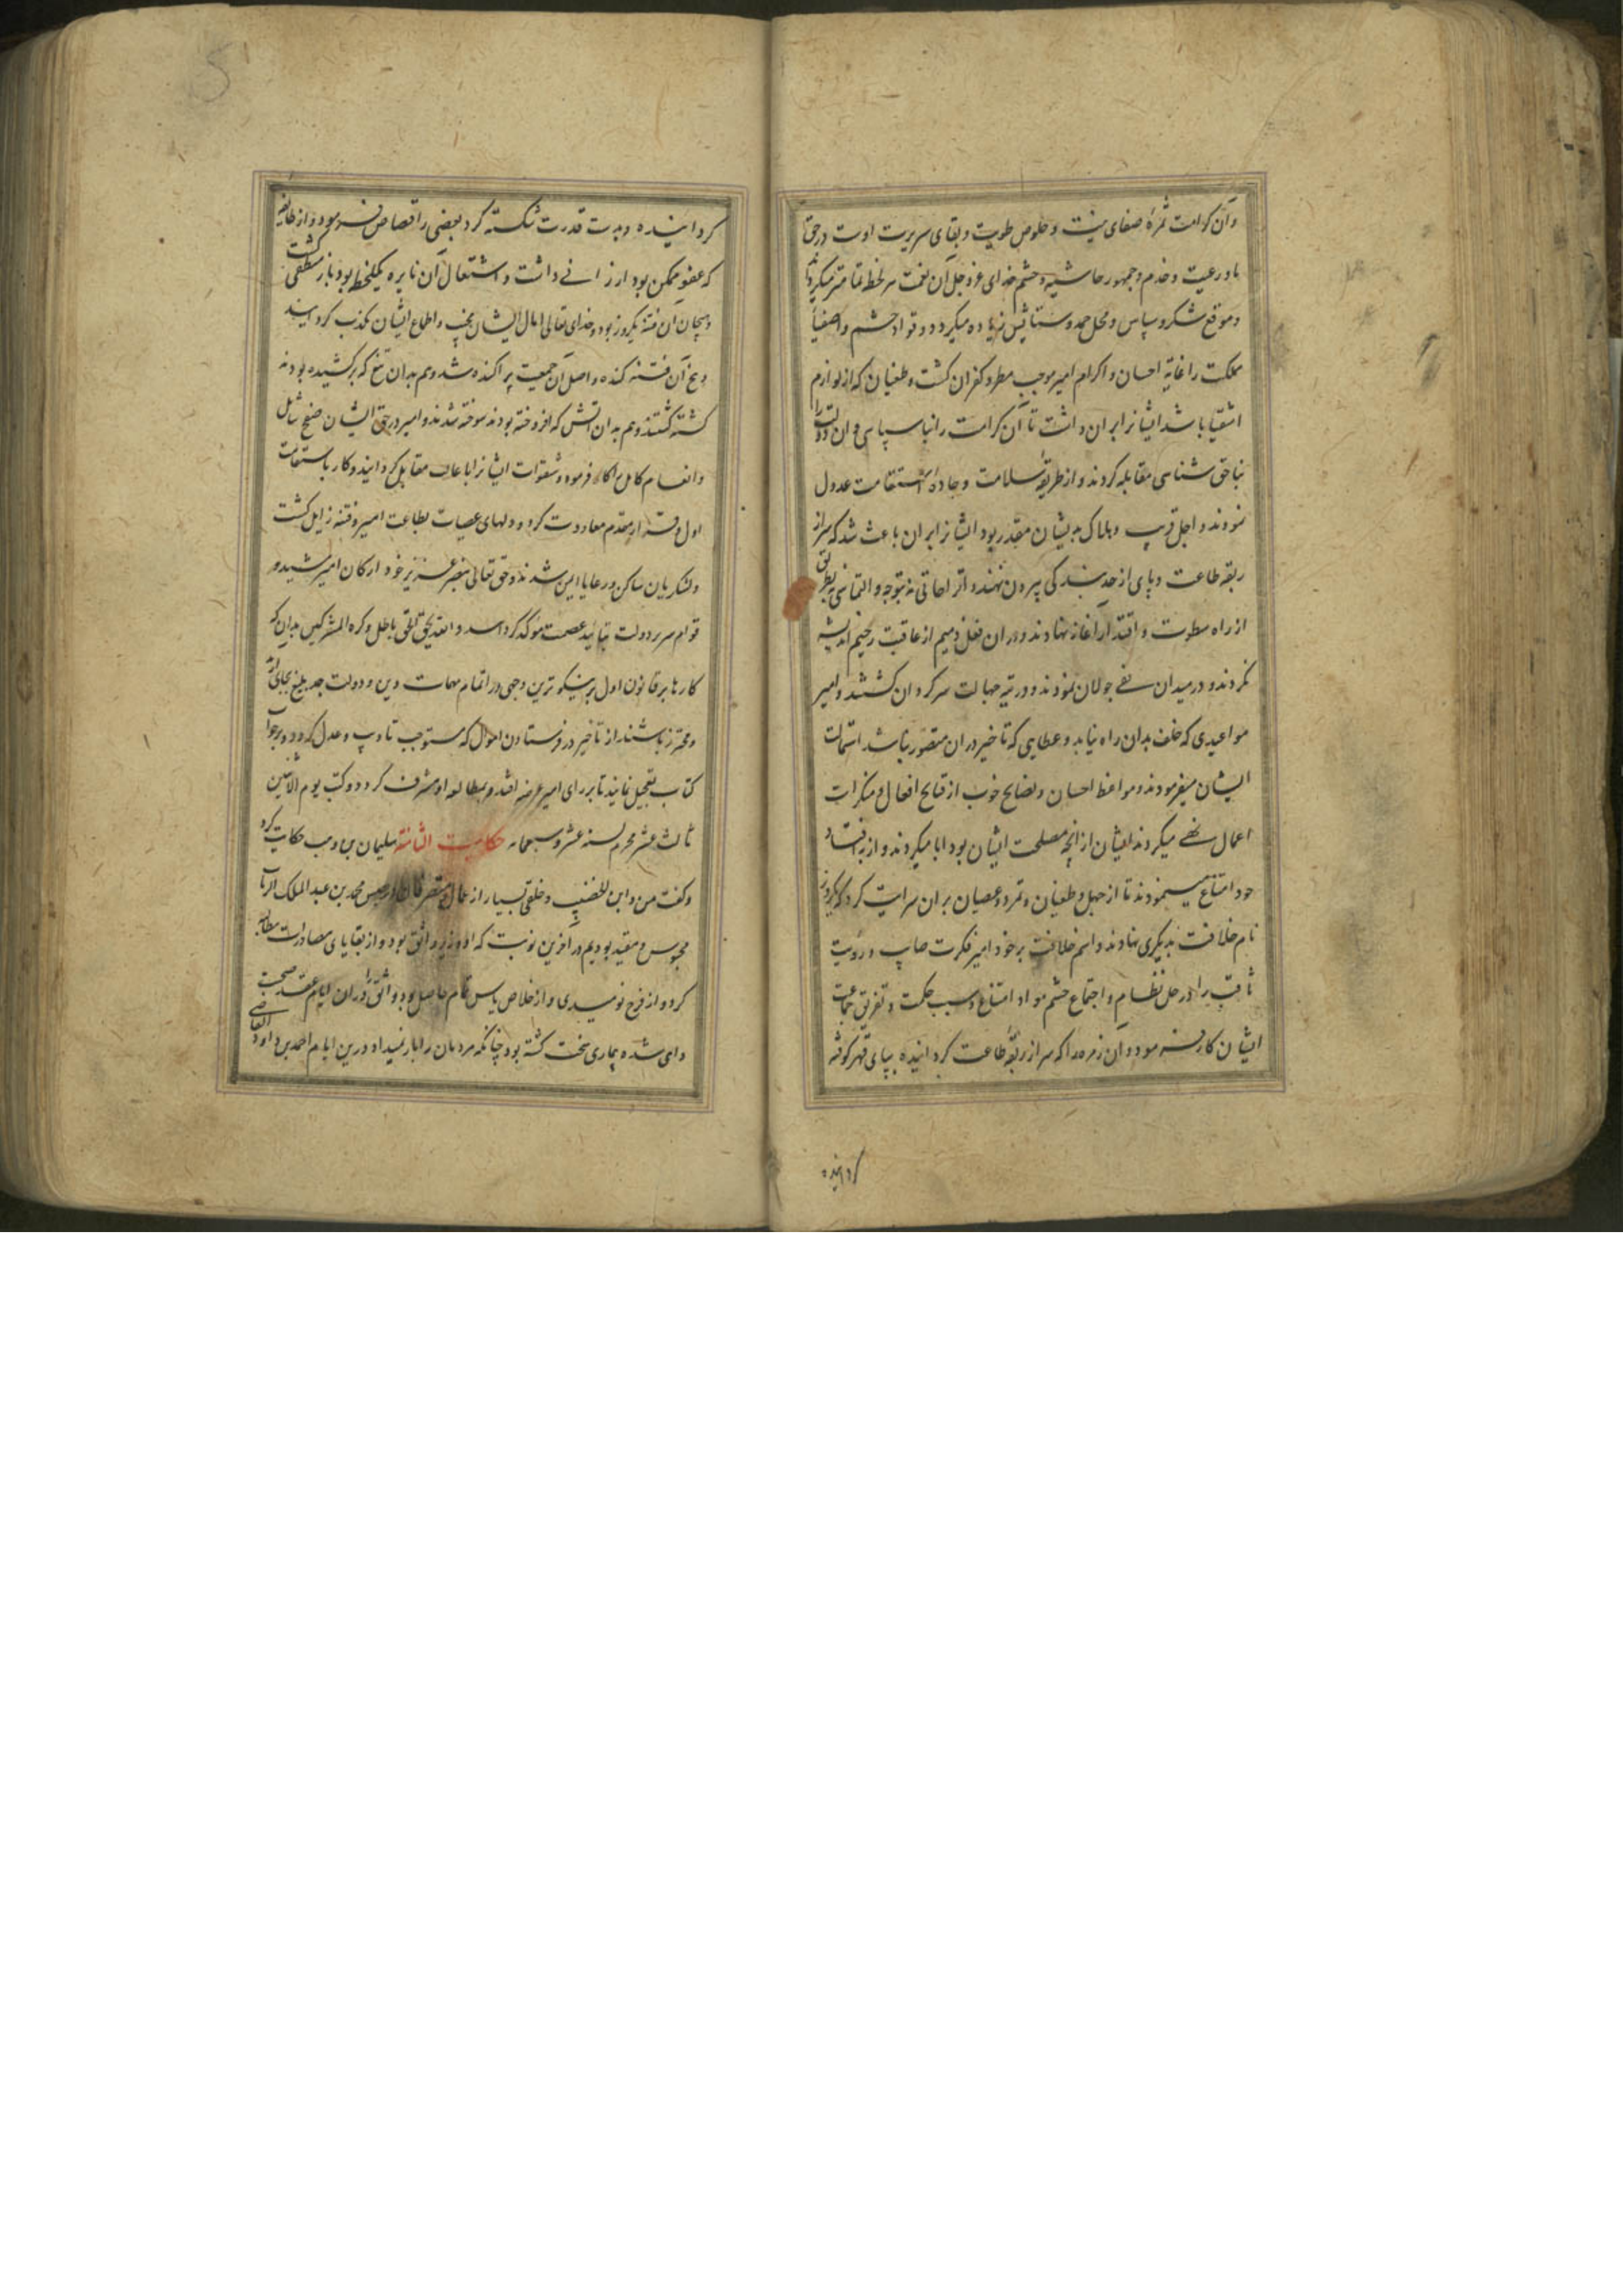 وآن کرامت ثمرهٔ صفای نیت و خلوص طویت و بقای سریرت اوست در حق
بلاد رعیت و خدم و جمهور حاشیه و حشم خدای عز و جل آن نعمت هر لحظه تمامتر میکرداند
و موقع شکر و سپاس و محل حمد و ستایش زیاده میکردد و قواد حشم و اصفیاء
مملکت را غایة احسان و اکرام امیر موجب بطر و کفران کشت و طغیان که از لوازم
اشقیا باشد ایشانرا بران داشت تا آن کرامت را بناسپاسی و ان دولت را
بناحق شناسی مقابله کردند و از طریقهٔ سلامت و جادهٔ استقامت عدول
نمودند و اجل قریب و هلاک بدیشان مقدر بود ایشانرا بران باعث شد که سر از
ربقه طاعت و پای از حد بندکی بیرون نهند و اقتراحاتی نه بتوجه و التماسی نه بطریق
از راه سطوت و اقتدار آغاز نهادند و دران فعل ذمیم از عاقبت وخیم اندیشه
نکردند و در میدان بغی جولان نمودند و در تیه جهالت سرکردان کشتند و امیر
مواعیدی که خلف بدان راه نیابد و عطایی که تاخیر دران متصور نباشد استمالت
ایشان میفرمودند و مواعظ احسان و نصایح خوب از قبایح افعال و منکرات
اعمال نهی میکردند ایشان از انچه مصلحت ایشان بود ابا میکردند و از فساد
خود امتناع نمینمودند تا از جهل و طغیان و تمرد و عصیان بران سرایت کرد که یکروز
نام خلافت بدیکری نهادند و اسم خلافت بر خود امیر فکرت صایب و رؤیت
ثاقب را در حل نظام و اجتماع حشم مواد امتناع و سبب حکمت و تفریق جماعت
ایشان کار فرمود و ان زمره را که سر از ربقهٔ طاعت کردانیده بپای قهر کوفته
کردانیده
کردانیده و بدست قدرت شکسته کرد بعضی را قصاص فرمود و از طایفه
که عفو ممکن بود ارزانی داشت و اشتعال آن نایره یکلحظه بود باز منطفی کشت
و هیجان ان فتنه یکروز بود و خدای تعالی امال ایشان بخیب و اطماع ایشان مکذب کردانید
و بیخ آن فتنه کنده و اصل آن جمعیت پراکنده شد و هم بدان تیغ که برکشیده بودند
کشته کشتند و هم بدان آتش که افروخته بودند سوخته شدند و امیر در حق ایشان صفح شامل
و انعام کامل فرمود و ایشانرا مقابل کردانید و کار باستقامت
اول معاودت کرد و دلهای عصیات بطاعت امیر و فتنه زایل کشت
و لشکریان ساکن و رعایا ایمن شدند و حق تعالی بنصر عزیز خود ارکان امیر مشید و
قوام سریر دولت بتایید عصمت موکد کرداند و الله یحق الحق باطل و کره المشرکین بدان که
کارها بر قانون اول بر نیکوترین وجهی در اتمام مهمات دین و دولت جد بلیغ بجای آرند
و محترز باشند از تاخیر در فرستادن اموال که مستوجب تادیب و عدل کردد و بر جواب
کتاب تعجیل نمایند تا بر رای امیر عرضه افتد و بمطالعه او مشرف کردد و کتب یوم الاثنین
ثالث عشر محرم لسنه عشر و سبعمایه حکایت الثانیة سلیمان بن وهب حکایت کرد
و کفت من و ابن الخصیب و خلقی بسیار از عمال و متصرفان در حبس محمد بن عبد الملک الزیات
محبوس و مقید بودیم در آخرین نوبت که او وزیر واثق بود و از بقایای مصادرات مطالبه
کرد و از فرج نومیدی و از خلاص یاس تمام حاصل بود و واثق را دران ایام عقد صحبت
وای شده بیماری سخت کشته بود چنانکه مردمان را بار نمیداد و درین ایام احمد بن داود القاضی